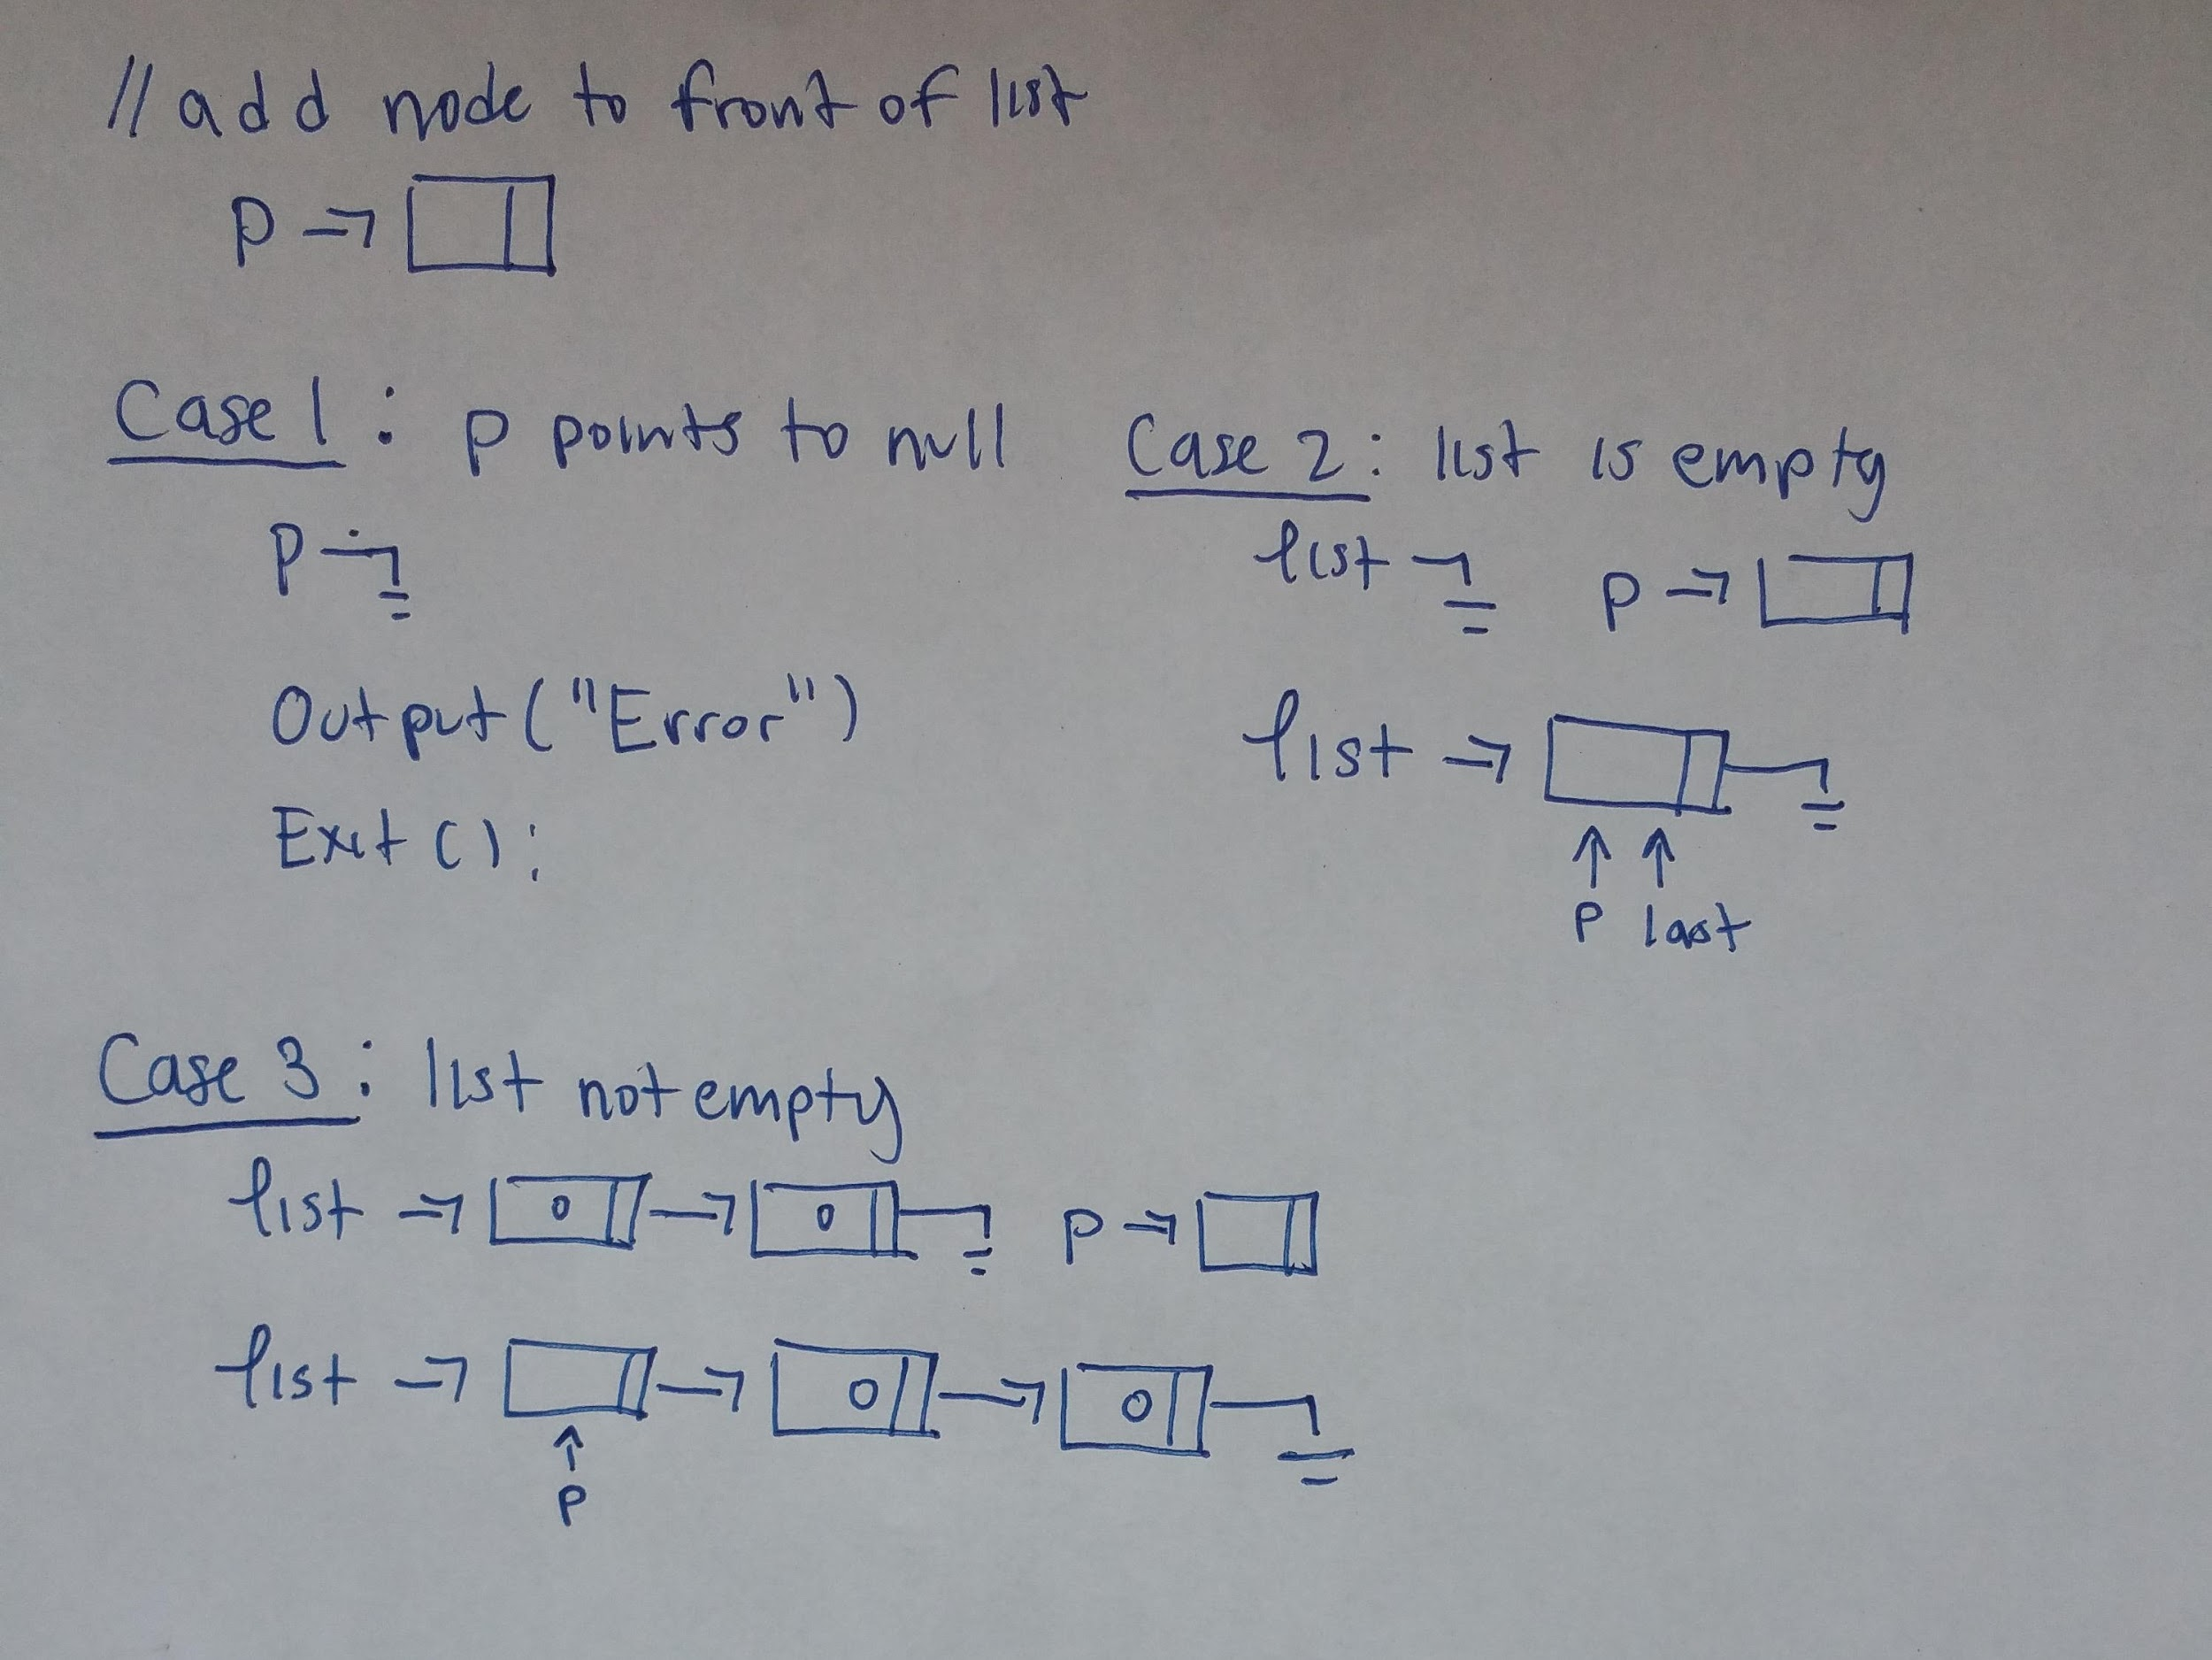 // add node to front of list
p →
Case 1 : p points to null
p
Output ("Error")
Exit ();
Case 2 : list is empty
list p →
list →
↑ ↑
p last
Case 3 : list not empty
list → o → o p →
list → → o → o
↑
p